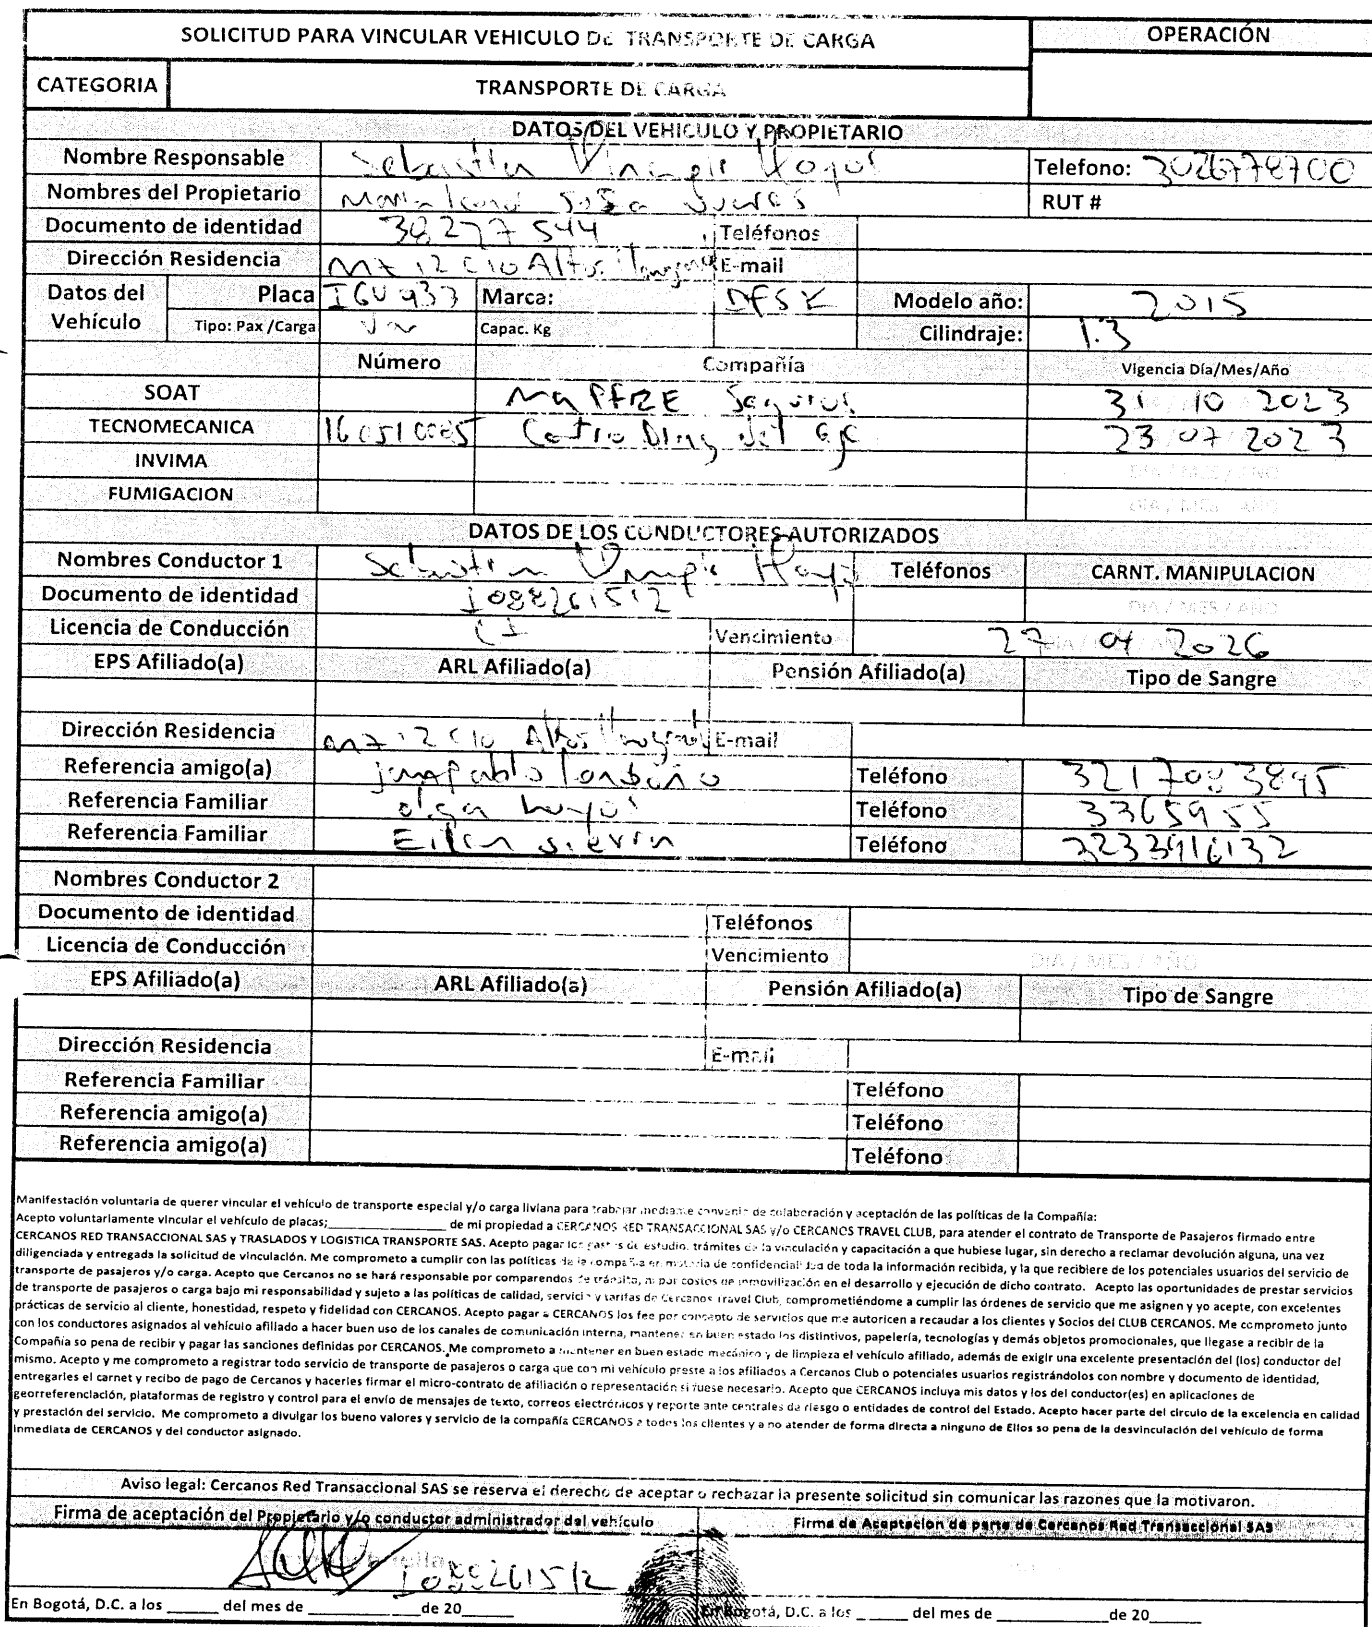 SOLICITUD PARA VINCULAR VEHICULO DE TRANSPORTE DE CARGA
OPERACIÓN
CATEGORIA TRANSPORTE DE CARGA
DATOS DEL VEHICULO Y PROPIETARIO
Nombre Responsable Sebastian Hoyos Telefono: 3026778700
Nombres del Propietario Maria Sosa RUT #
Documento de identidad 38277544 Teléfonos
Dirección Residencia Mz 12 C10 Altos E-mail
Datos del Vehículo Placa IGU 937 Marca: DFSK Modelo año: 2015
Tipo: Pax /Carga Van Capac. Kg Cilindraje: 1.3
Número Compañía Vigencia Día/Mes/Año
SOAT MAPFRE Seguros 31 10 2023
TECNOMECANICA 160510085 Centro Diag del Eje 23 07 2023
INVIMA DIA / MES / AÑO
FUMIGACION DIA / MES / AÑO
DATOS DE LOS CONDUCTORES AUTORIZADOS
Nombres Conductor 1 Sebastian Teléfonos CARNT. MANIPULACION
Documento de identidad 1088261512 DIA / MES / AÑO
Licencia de Conducción C1 Vencimiento 27 04 2026
EPS Afiliado(a) ARL Afiliado(a) Pensión Afiliado(a) Tipo de Sangre
Dirección Residencia Mz 12 C10 Altos E-mail
Referencia amigo(a) juan pablo Londoño Teléfono 3217083895
Referencia Familiar olga hoyos Teléfono 3365955
Referencia Familiar Teléfono 3233916132
Nombres Conductor 2
Documento de identidad Teléfonos
Licencia de Conducción Vencimiento DIA / MES / AÑO
EPS Afiliado(a) ARL Afiliado(a) Pensión Afiliado(a) Tipo de Sangre
Dirección Residencia E-mail
Referencia Familiar Teléfono
Referencia amigo(a) Teléfono
Referencia amigo(a) Teléfono
Manifestación voluntaria de querer vincular el vehículo de transporte especial y/o carga liviana para trabajar mediante convenio de colaboración y aceptación de las políticas de la Compañía:
Acepto voluntariamente vincular el vehículo de placas;____________________ de mi propiedad a CERCANOS RED TRANSACCIONAL SAS y/o CERCANOS TRAVEL CLUB, para atender el contrato de Transporte de Pasajeros firmado entre
CERCANOS RED TRANSACCIONAL SAS y TRASLADOS Y LOGISTICA TRANSPORTE SAS. Acepto pagar los gastos de estudio, trámites de la vinculación y capacitación a que hubiese lugar, sin derecho a reclamar devolución alguna, una vez
diligenciada y entregada la solicitud de vinculación. Me comprometo a cumplir con las políticas de la compañía en materia de confidencialidad de toda la información recibida, y la que recibiere de los potenciales usuarios del servicio de
transporte de pasajeros y/o carga. Acepto que Cercanos no se hará responsable por comparendos de tránsito, ni por costos de inmovilización en el desarrollo y ejecución de dicho contrato. Acepto las oportunidades de prestar servicios
de transporte de pasajeros o carga bajo mi responsabilidad y sujeto a las políticas de calidad, servicio y tarifas de Cercanos Travel Club, comprometiéndome a cumplir las órdenes de servicio que me asignen y yo acepte, con excelentes
prácticas de servicio al cliente, honestidad, respeto y fidelidad con CERCANOS. Acepto pagar a CERCANOS los fee por concepto de servicios que me autoricen a recaudar a los clientes y Socios del CLUB CERCANOS. Me comprometo junto
con los conductores asignados al vehículo afiliado a hacer buen uso de los canales de comunicación interna, mantener en buen estado los distintivos, papelería, tecnologías y demás objetos promocionales, que llegase a recibir de la
Compañía so pena de recibir y pagar las sanciones definidas por CERCANOS. Me comprometo a mantener en buen estado mecánico y de limpieza el vehículo afiliado, además de exigir una excelente presentación del (los) conductor del
mismo. Acepto y me comprometo a registrar todo servicio de transporte de pasajeros o carga que con mi vehículo preste a los afiliados a Cercanos Club o potenciales usuarios registrándolos con nombre y documento de identidad,
entregarles el carnet y recibo de pago de Cercanos y hacerles firmar el micro-contrato de afiliación o representación si fuese necesario. Acepto que CERCANOS incluya mis datos y los del conductor(es) en aplicaciones de
georreferenciación, plataformas de registro y control para el envío de mensajes de texto, correos electrónicos y reporte ante centrales de riesgo o entidades de control del Estado. Acepto hacer parte del circulo de la excelencia en calidad
y prestación del servicio. Me comprometo a divulgar los bueno valores y servicio de la compañía CERCANOS a todos los clientes y a no atender de forma directa a ninguno de Ellos so pena de la desvinculación del vehículo de forma
inmediata de CERCANOS y del conductor asignado.
Aviso legal: Cercanos Red Transaccional SAS se reserva el derecho de aceptar o rechazar la presente solicitud sin comunicar las razones que la motivaron.
Firma de aceptación del Propietario y/o conductor administrador del vehículo Firma de Aceptacion de parte de Cercanos Red Transaccional SAS
1088261512
En Bogotá, D.C. a los ______ del mes de _____________de 20______ En Bogotá, D.C. a los ______ del mes de _____________de 20______